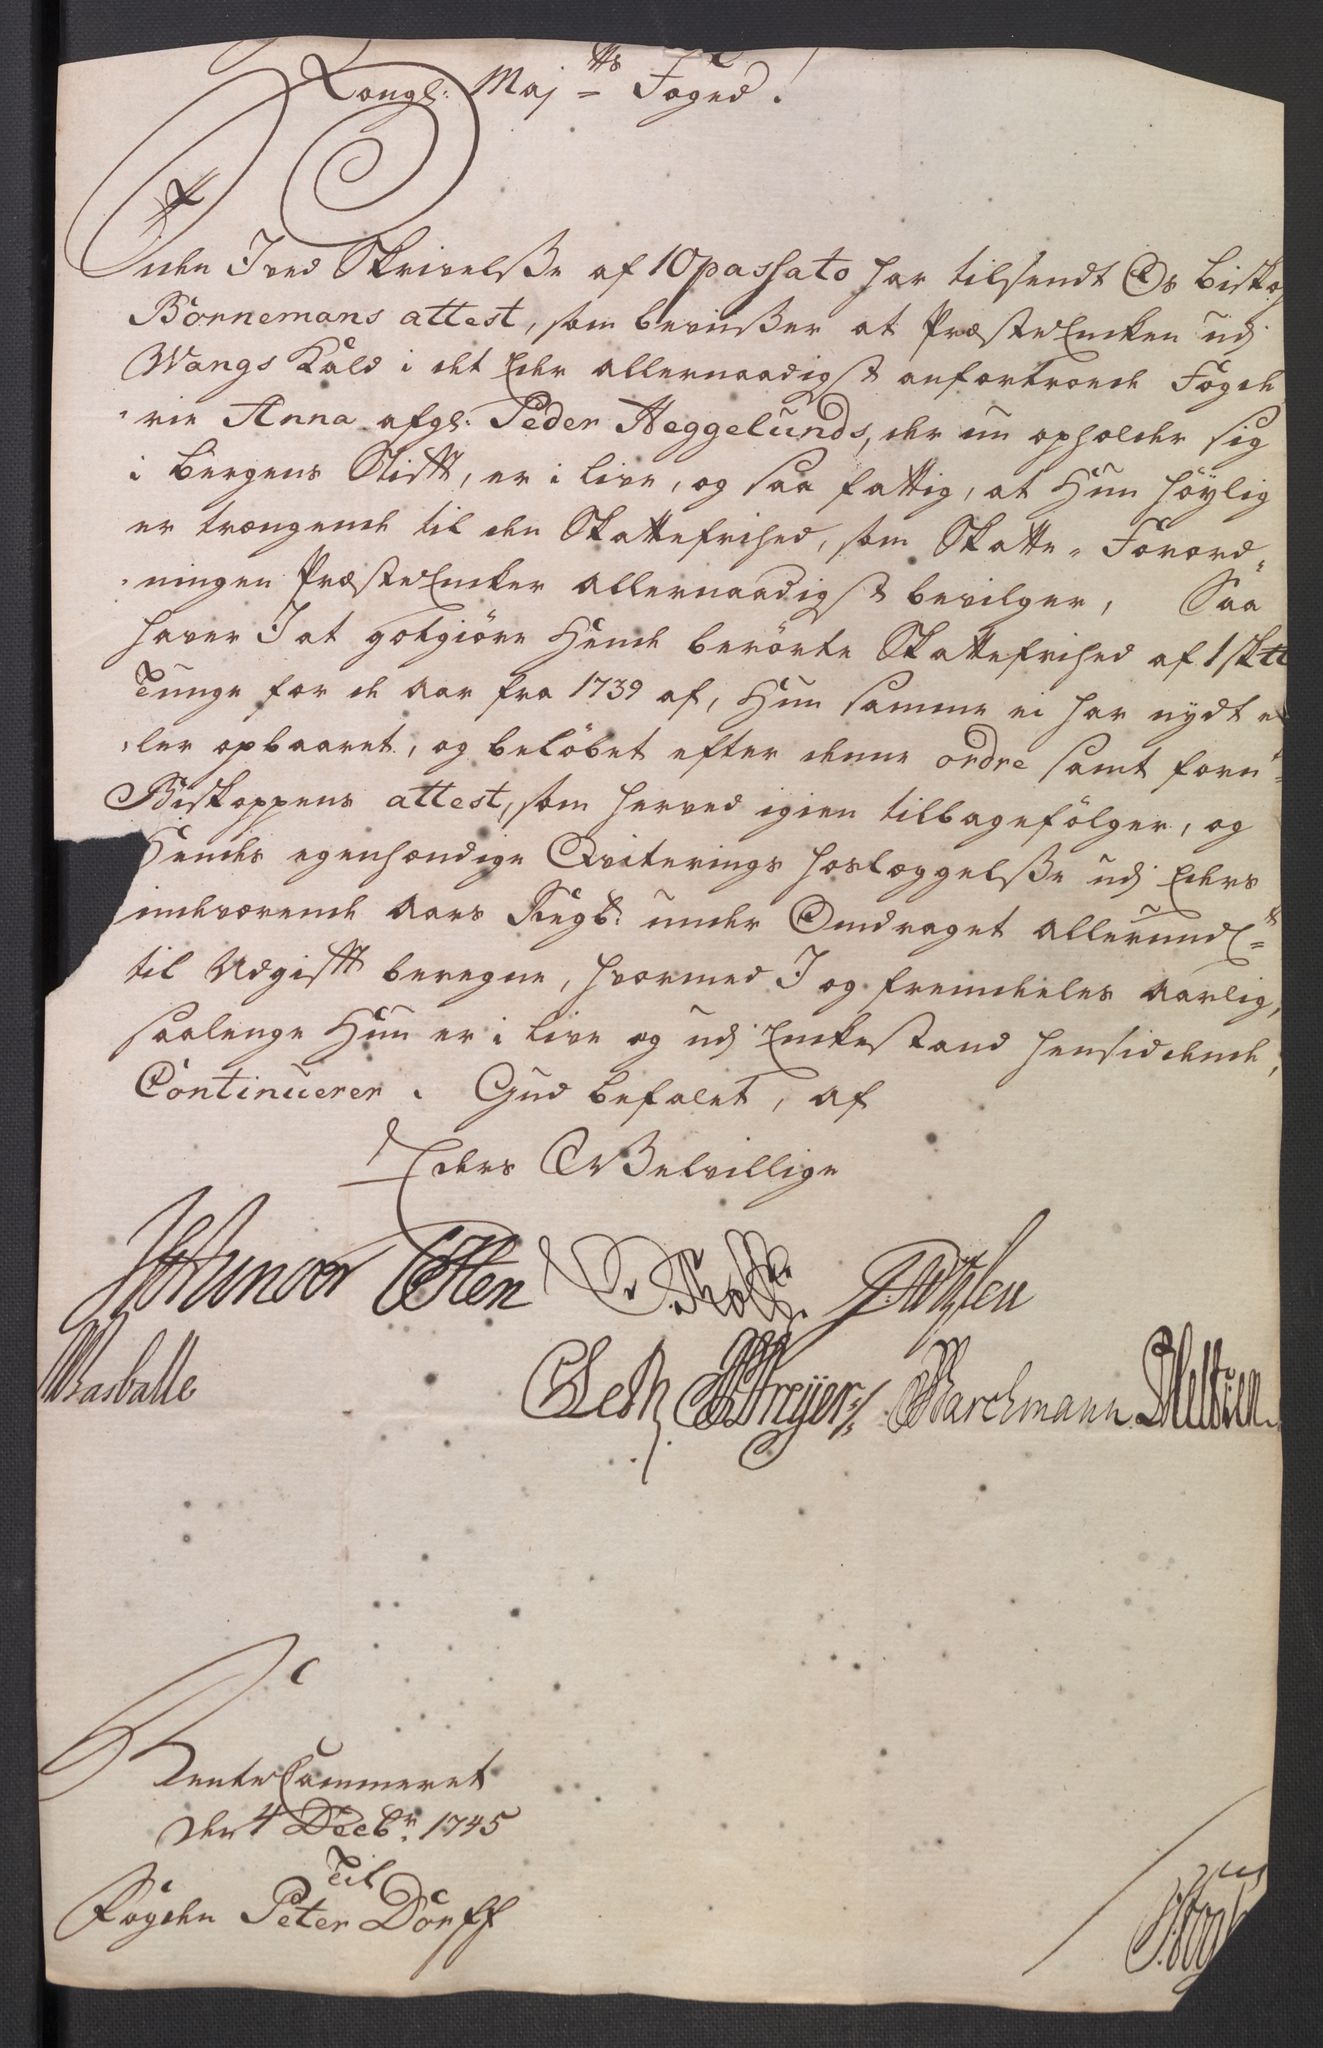 Kongl: Maj:tts Foged!
Siden I ved Skrivelsße af 10 passato har tilsendt Os Biskop
Bornemans attest, som bevißer at Præste Encken udj
Wangs Kald i det Eder allernaadigst anfortroede Fogde
rie Anna afgl: Peder Heggelunds, der nu opholder sig
i Bergens Stift, er i live, og saa fattig, at Hun höylig
er trængende til den Skattefrihed, som Skatte-Forord-
ningen Præste Encker allernaadigst bevilger, Saa
haver I at godgiöre Hende berörte Skattefrihed af 1 skatte
Tunge for de Aar fra 1739 af, Hun samme ei har nydt el
ler opbaaret, og belöbet efter denne ordre samt forn:
Biskoppens attest, som herved igien tilbagefölger, og
Hendes egenhændige Qviterings hoslæggelsße udj Eders
indeværende Aars Regb: under Omdraget allerundl:
til Udgift beregne, hvormed I og fremdeeles Aarlig,
saalenge Hun er i live og udj Enckestand hensiddende,
Continuerer. Gud befalet, af
Eders Velvillige
Holten
Basballe Barchmann
Rente Cammeret
den 4 Decbr: 1745
Til
Fogden Peter Dorff